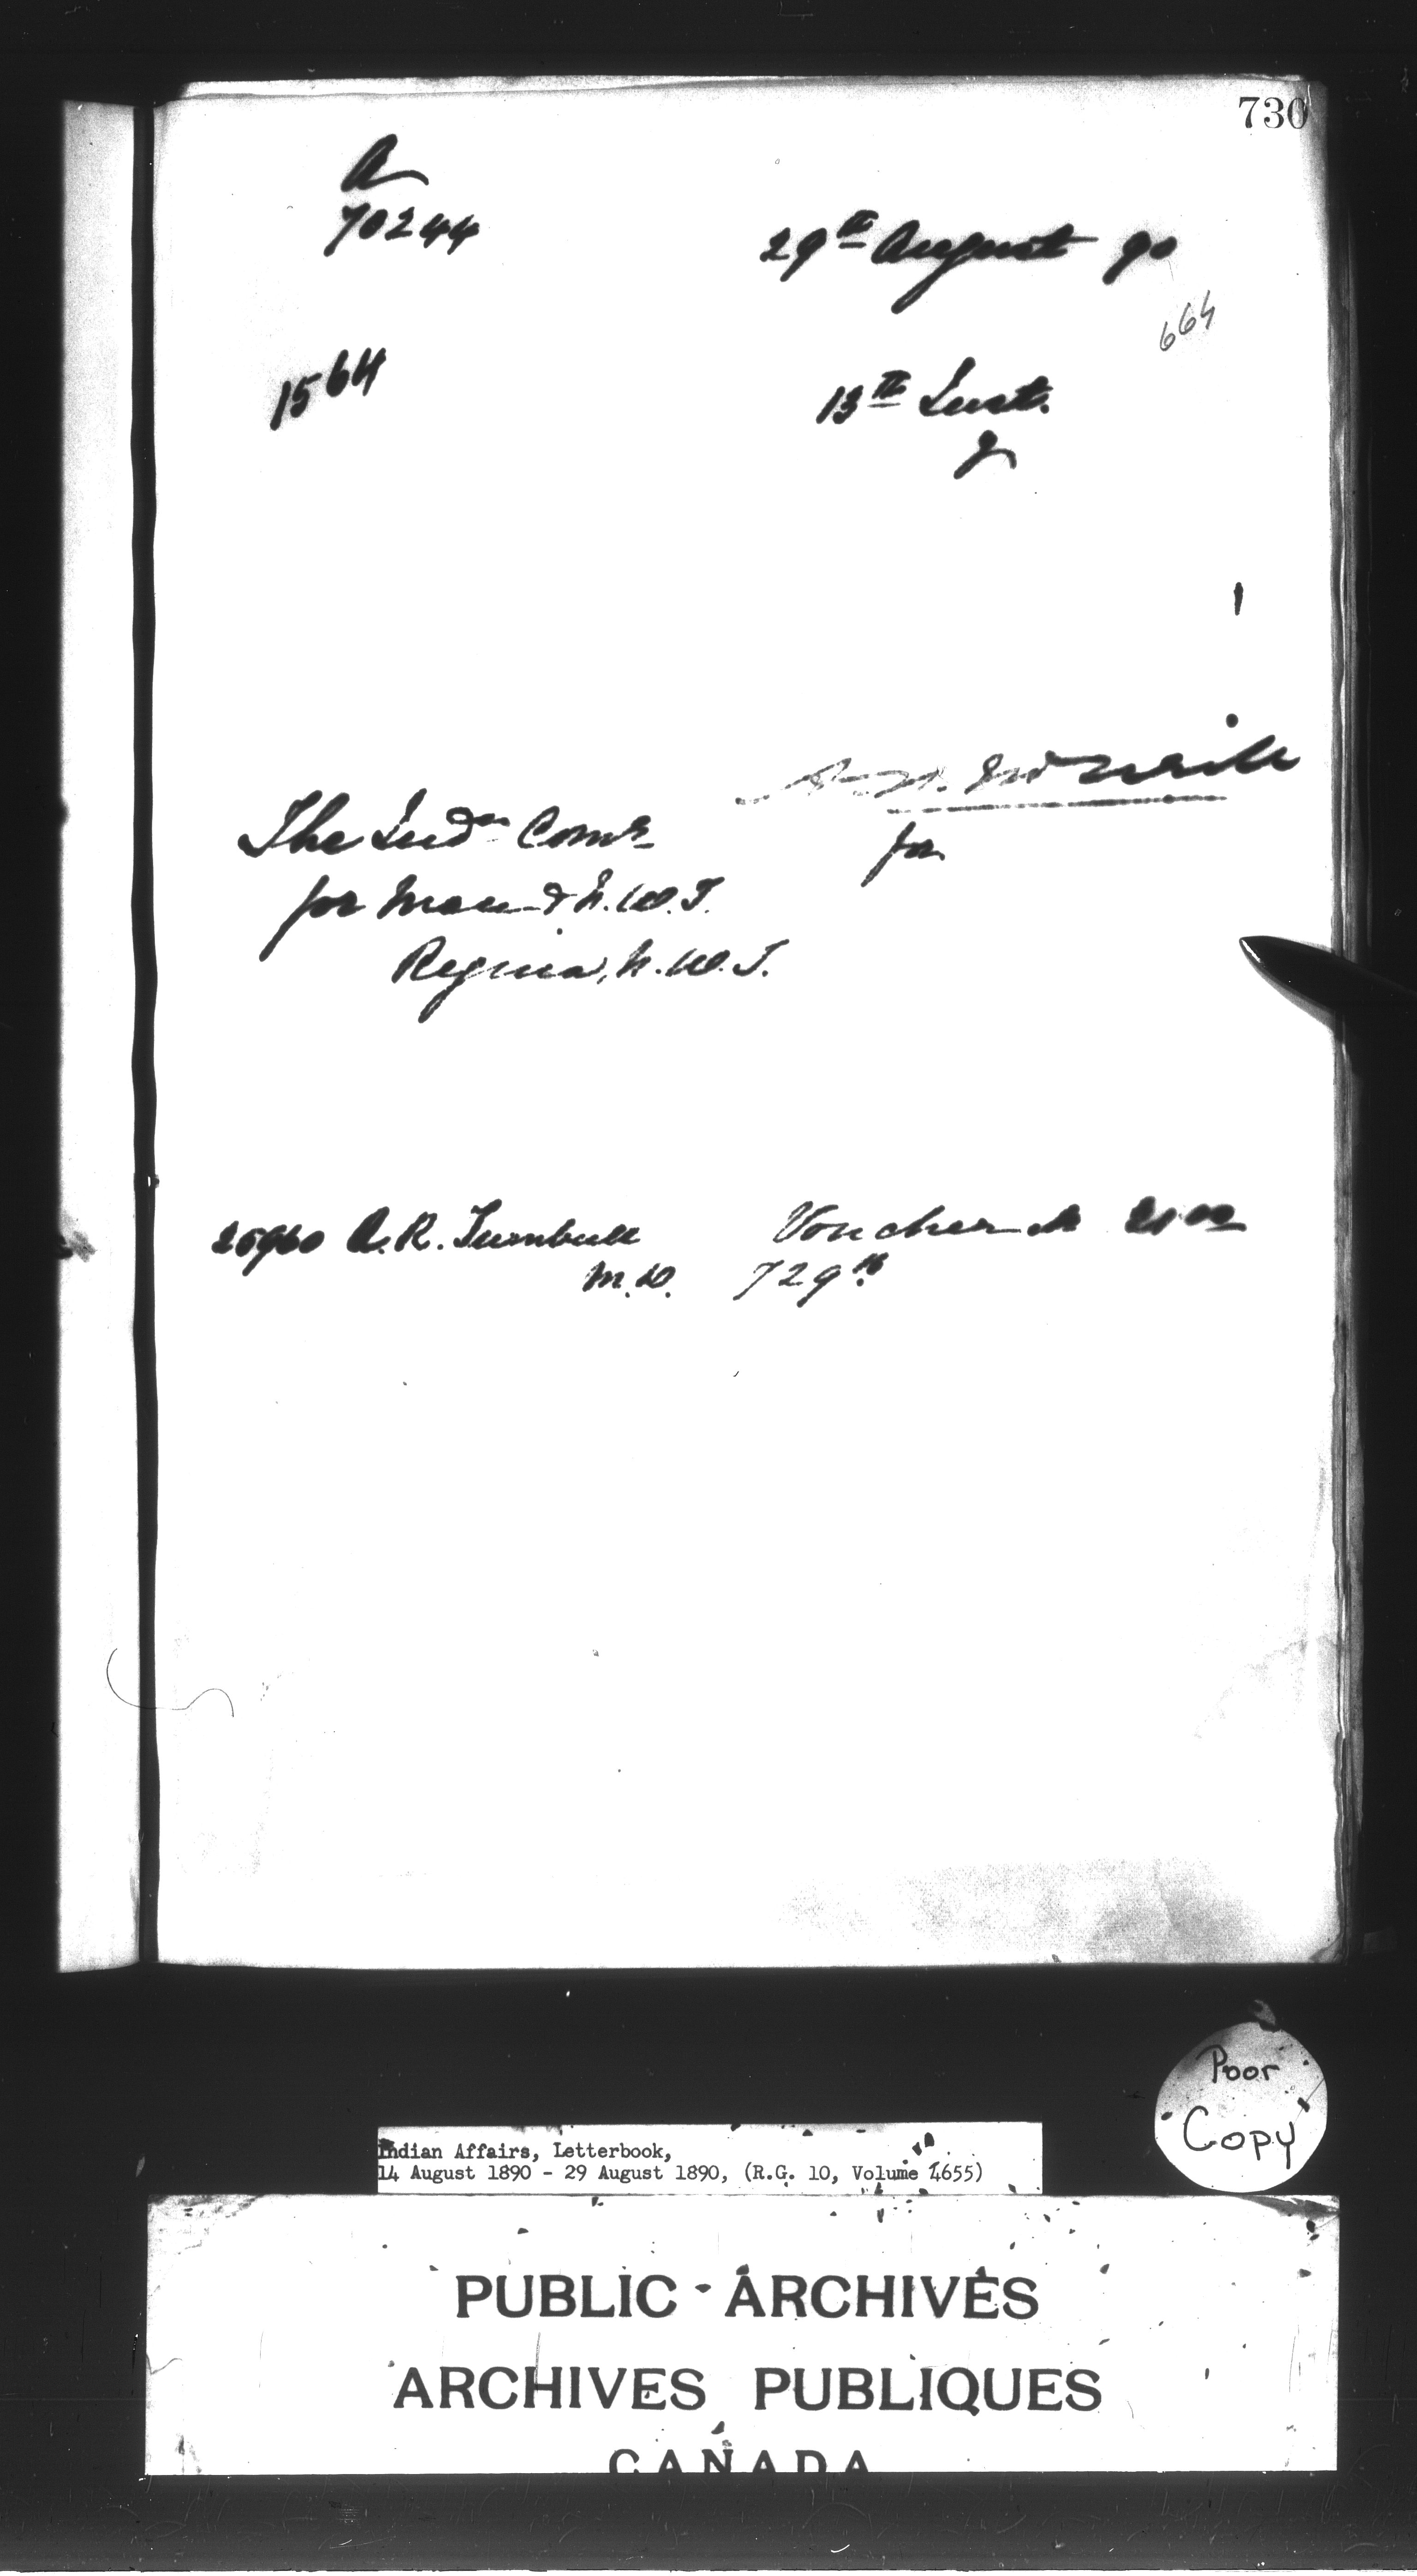 730
A
70244
29th August 90
664
1564
13th Inst.
The Indn Comr
for
for Man & N.W.T.
Regina, N.W.T.
25960 A.R. Turnbull Voucher
M.D. 729
Poor
Copy
Indian Affairs, Letterbook,
14 August 1890 - 29 August 1890, (R.G. 10, Volume 4655)
PUBLIC ARCHIVES
ARCHIVES PUBLIQUES
CANADA